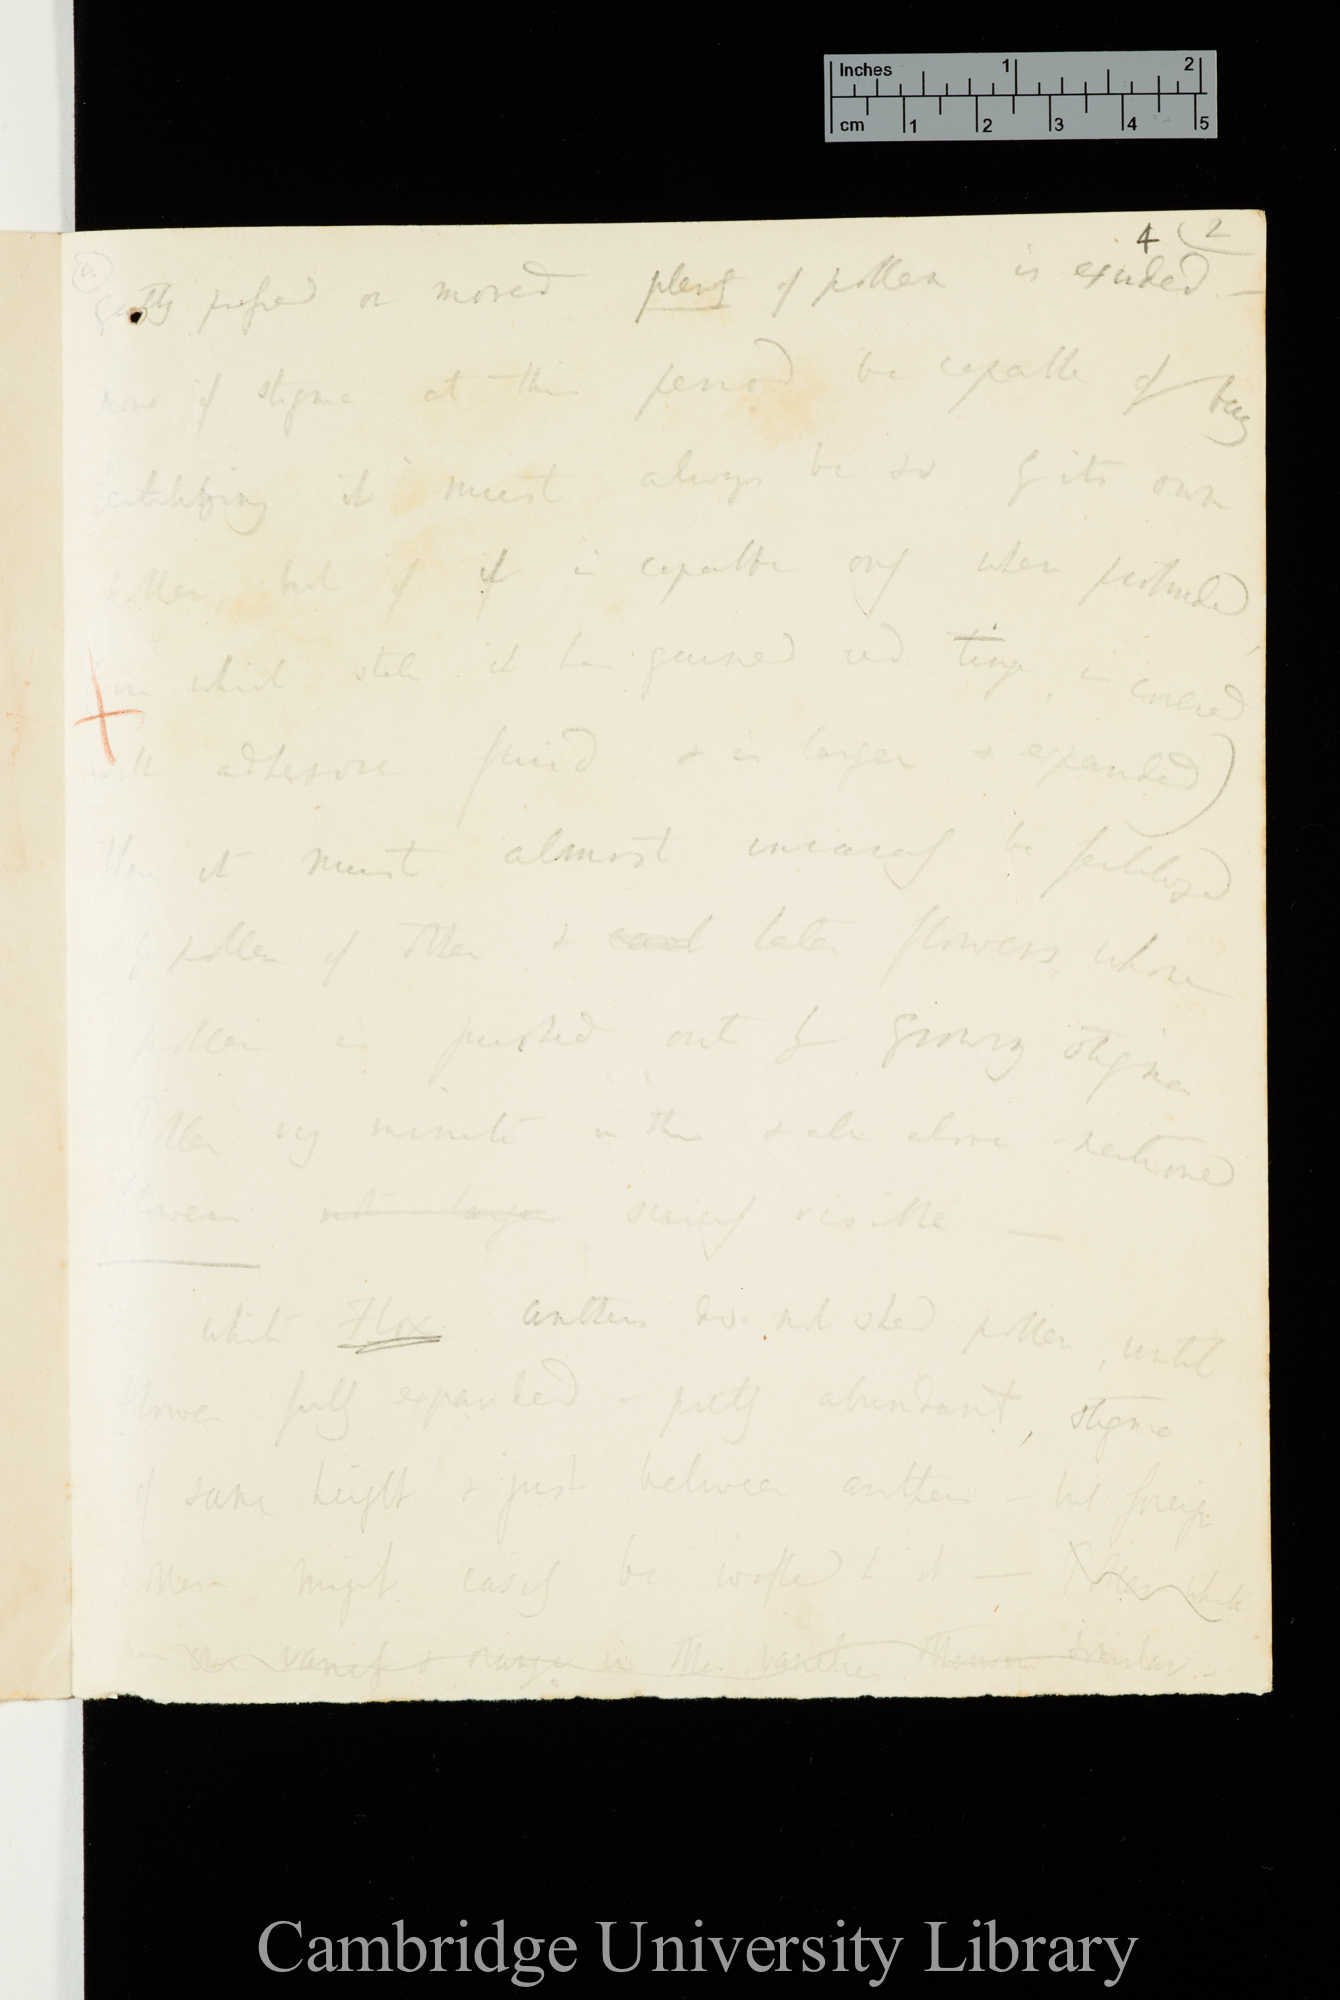 Inches 1 2
cm 1 2 3 4 5
4 (2
(a)
gently pressed or moved plenty of pollen is exuded.—
now if stigma at this period be capable of being
fertilizing it must always be so by its own
pollen, but if it is capable only when protruded,
(in which state it has gained red tinge, is covered
with adhesive fluid & is larger & expanded)
then it must almost invariably be fertilized
by pollen of other & later flowers, whose
pollen is pushed out by growing stigma
Pollen very minute in the scale above mentioned
flowers not larger scarcely visible —
white Flox anthers do not shed pollen, until
flower fully expanded – pretty abundant, stigma
of same height & just between anthers – but foreign
pollen might easily be wafted to it — white
orange in the varieties similar –
Cambridge University Library